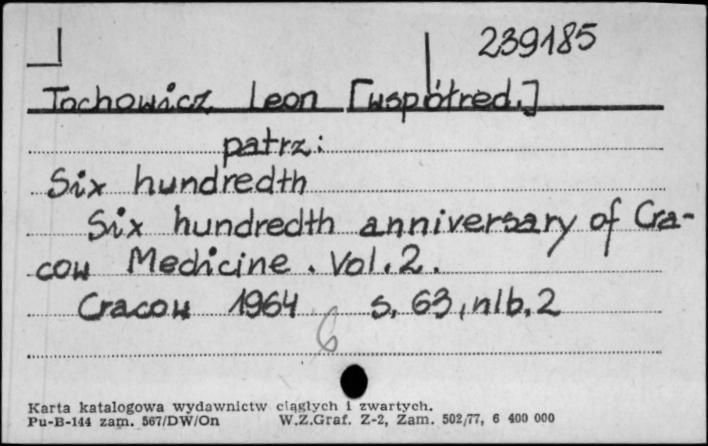 239185
Tochowicz Leon [współred.]
patrz:
Six hundredth
Six hundredth anniversary of Cra-
cow Medicine. Vol. 2.
Cracow 1964 s. 63, nlb. 2
6
Karta katalogowa wydawnictw ciągłych i zwartych.
Pu-B-144 zam. 567/DW/On W.Z.Graf. Z-2, Zam. 502/77, 6 400 000